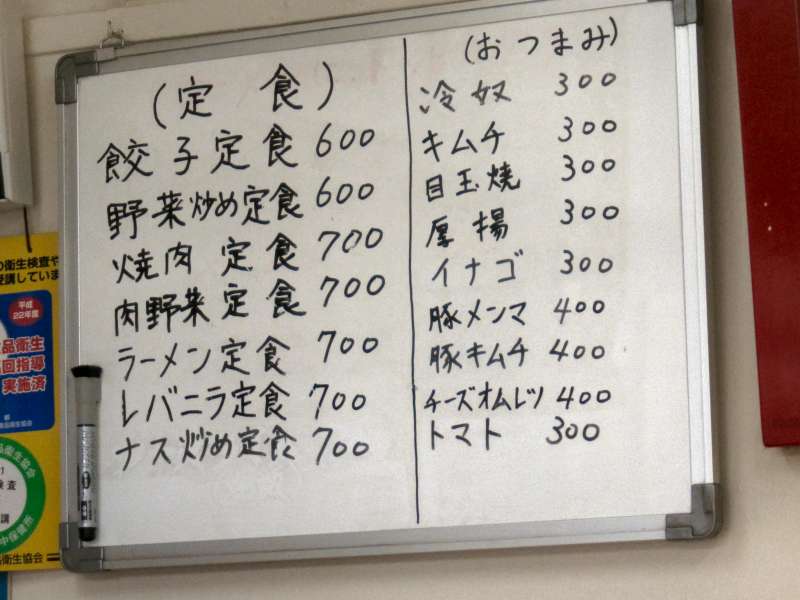 (定食)
餃子定食 600
野菜炒め定食 600
焼肉定食 700
肉野菜定食 700
ラーメン定食 700
レバニラ定食 700
ナス炒め定食 700
(おつまみ)
冷奴 300
キムチ 300
目玉焼 300
厚揚 300
イナゴ 300
豚メンマ 400
豚キムチ 400
チーズオムレツ 400
トマト 300
の衛生検査や
受講していま
平成
22年度
品衛生
回指導
実施済
品衛生協会
検査
講
中保健所
衛生協会